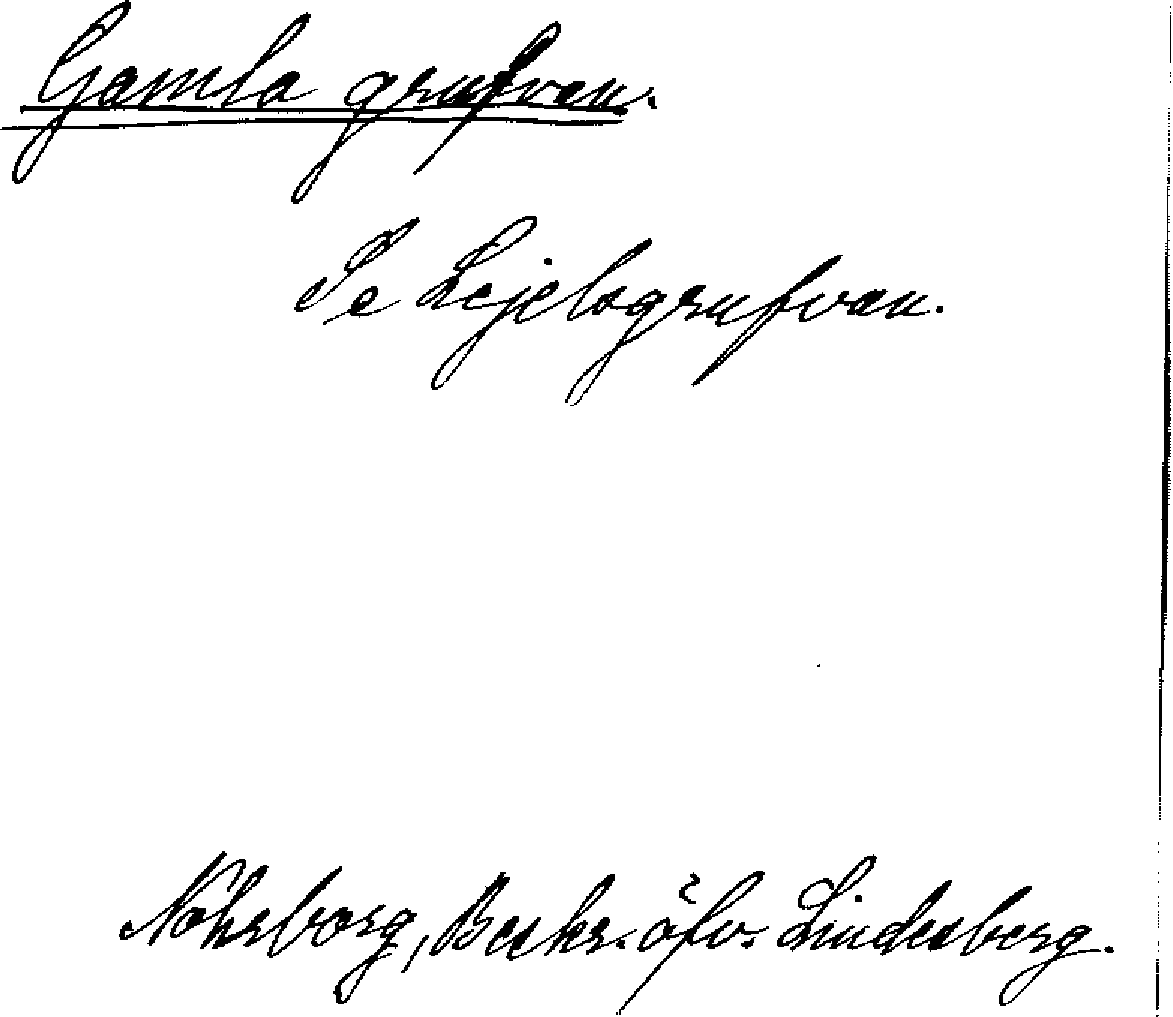 Gamla grufvan.
Se Lejelsgrufvan.
Nohrborg, Beskr. öfv. Lindesberg.